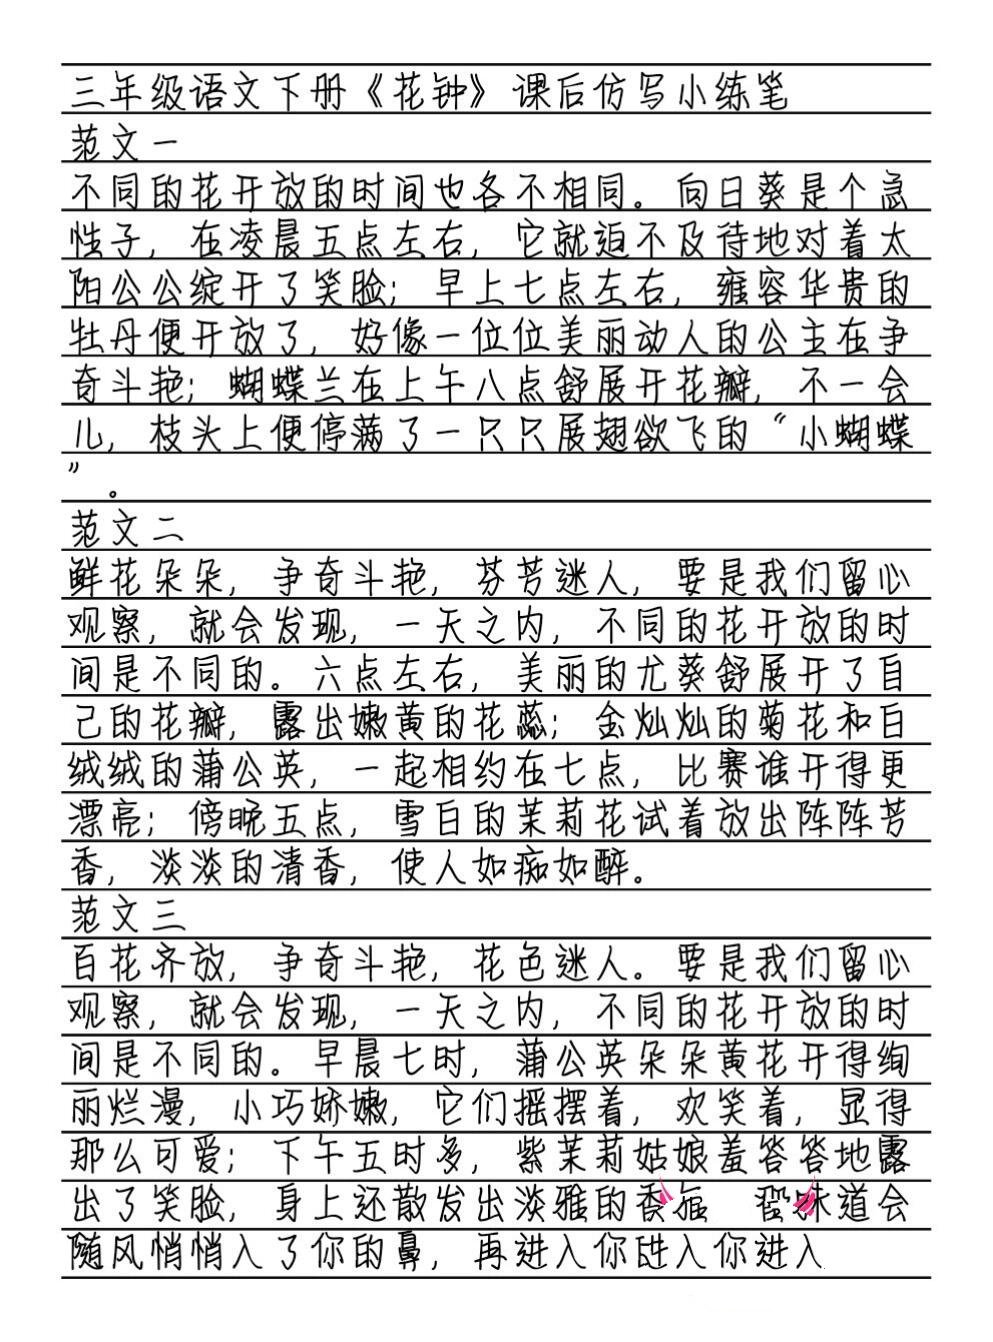 三年级语文下册《花钟》课后仿写小练笔
范文一
不同的花开放的时间也各不相同。向日葵是个急
性子，在凌晨五点左右，它就迫不及待地对着太
阳公公绽开了笑脸；早上七点左右，雍容华贵的
牡丹便开放了，好像一位位美丽动人的公主在争
奇斗艳；蝴蝶兰在上午八点舒展开花瓣，不一会
儿，枝头上便停满了一只只展翅欲飞的“小蝴蝶
”。
范文二
鲜花朵朵，争奇斗艳，芬芳迷人，要是我们留心
观察，就会发现，一天之内，不同的花开放的时
间是不同的。六点左右，美丽的尤葵舒展开了自
己的花瓣，露出嫩黄的花蕊；金灿灿的菊花和白
绒绒的蒲公英，一起相约在七点，比赛谁开得更
漂亮；傍晚五点，雪白的茉莉花试着放出阵阵芳
香，淡淡的清香，使人如痴如醉。
范文三
百花齐放，争奇斗艳，花色迷人。要是我们留心
观察，就会发现，一天之内，不同的花开放的时
间是不同的。早晨七时，蒲公英朵朵黄花开得绚
丽烂漫，小巧娇嫩，它们摇摆着，欢笑着，显得
那么可爱；下午五时多，紫茉莉姑娘羞答答地露
出了笑脸，身上还散发出淡雅的香味道会
随风悄悄入了你的鼻，再进入你进入你进入